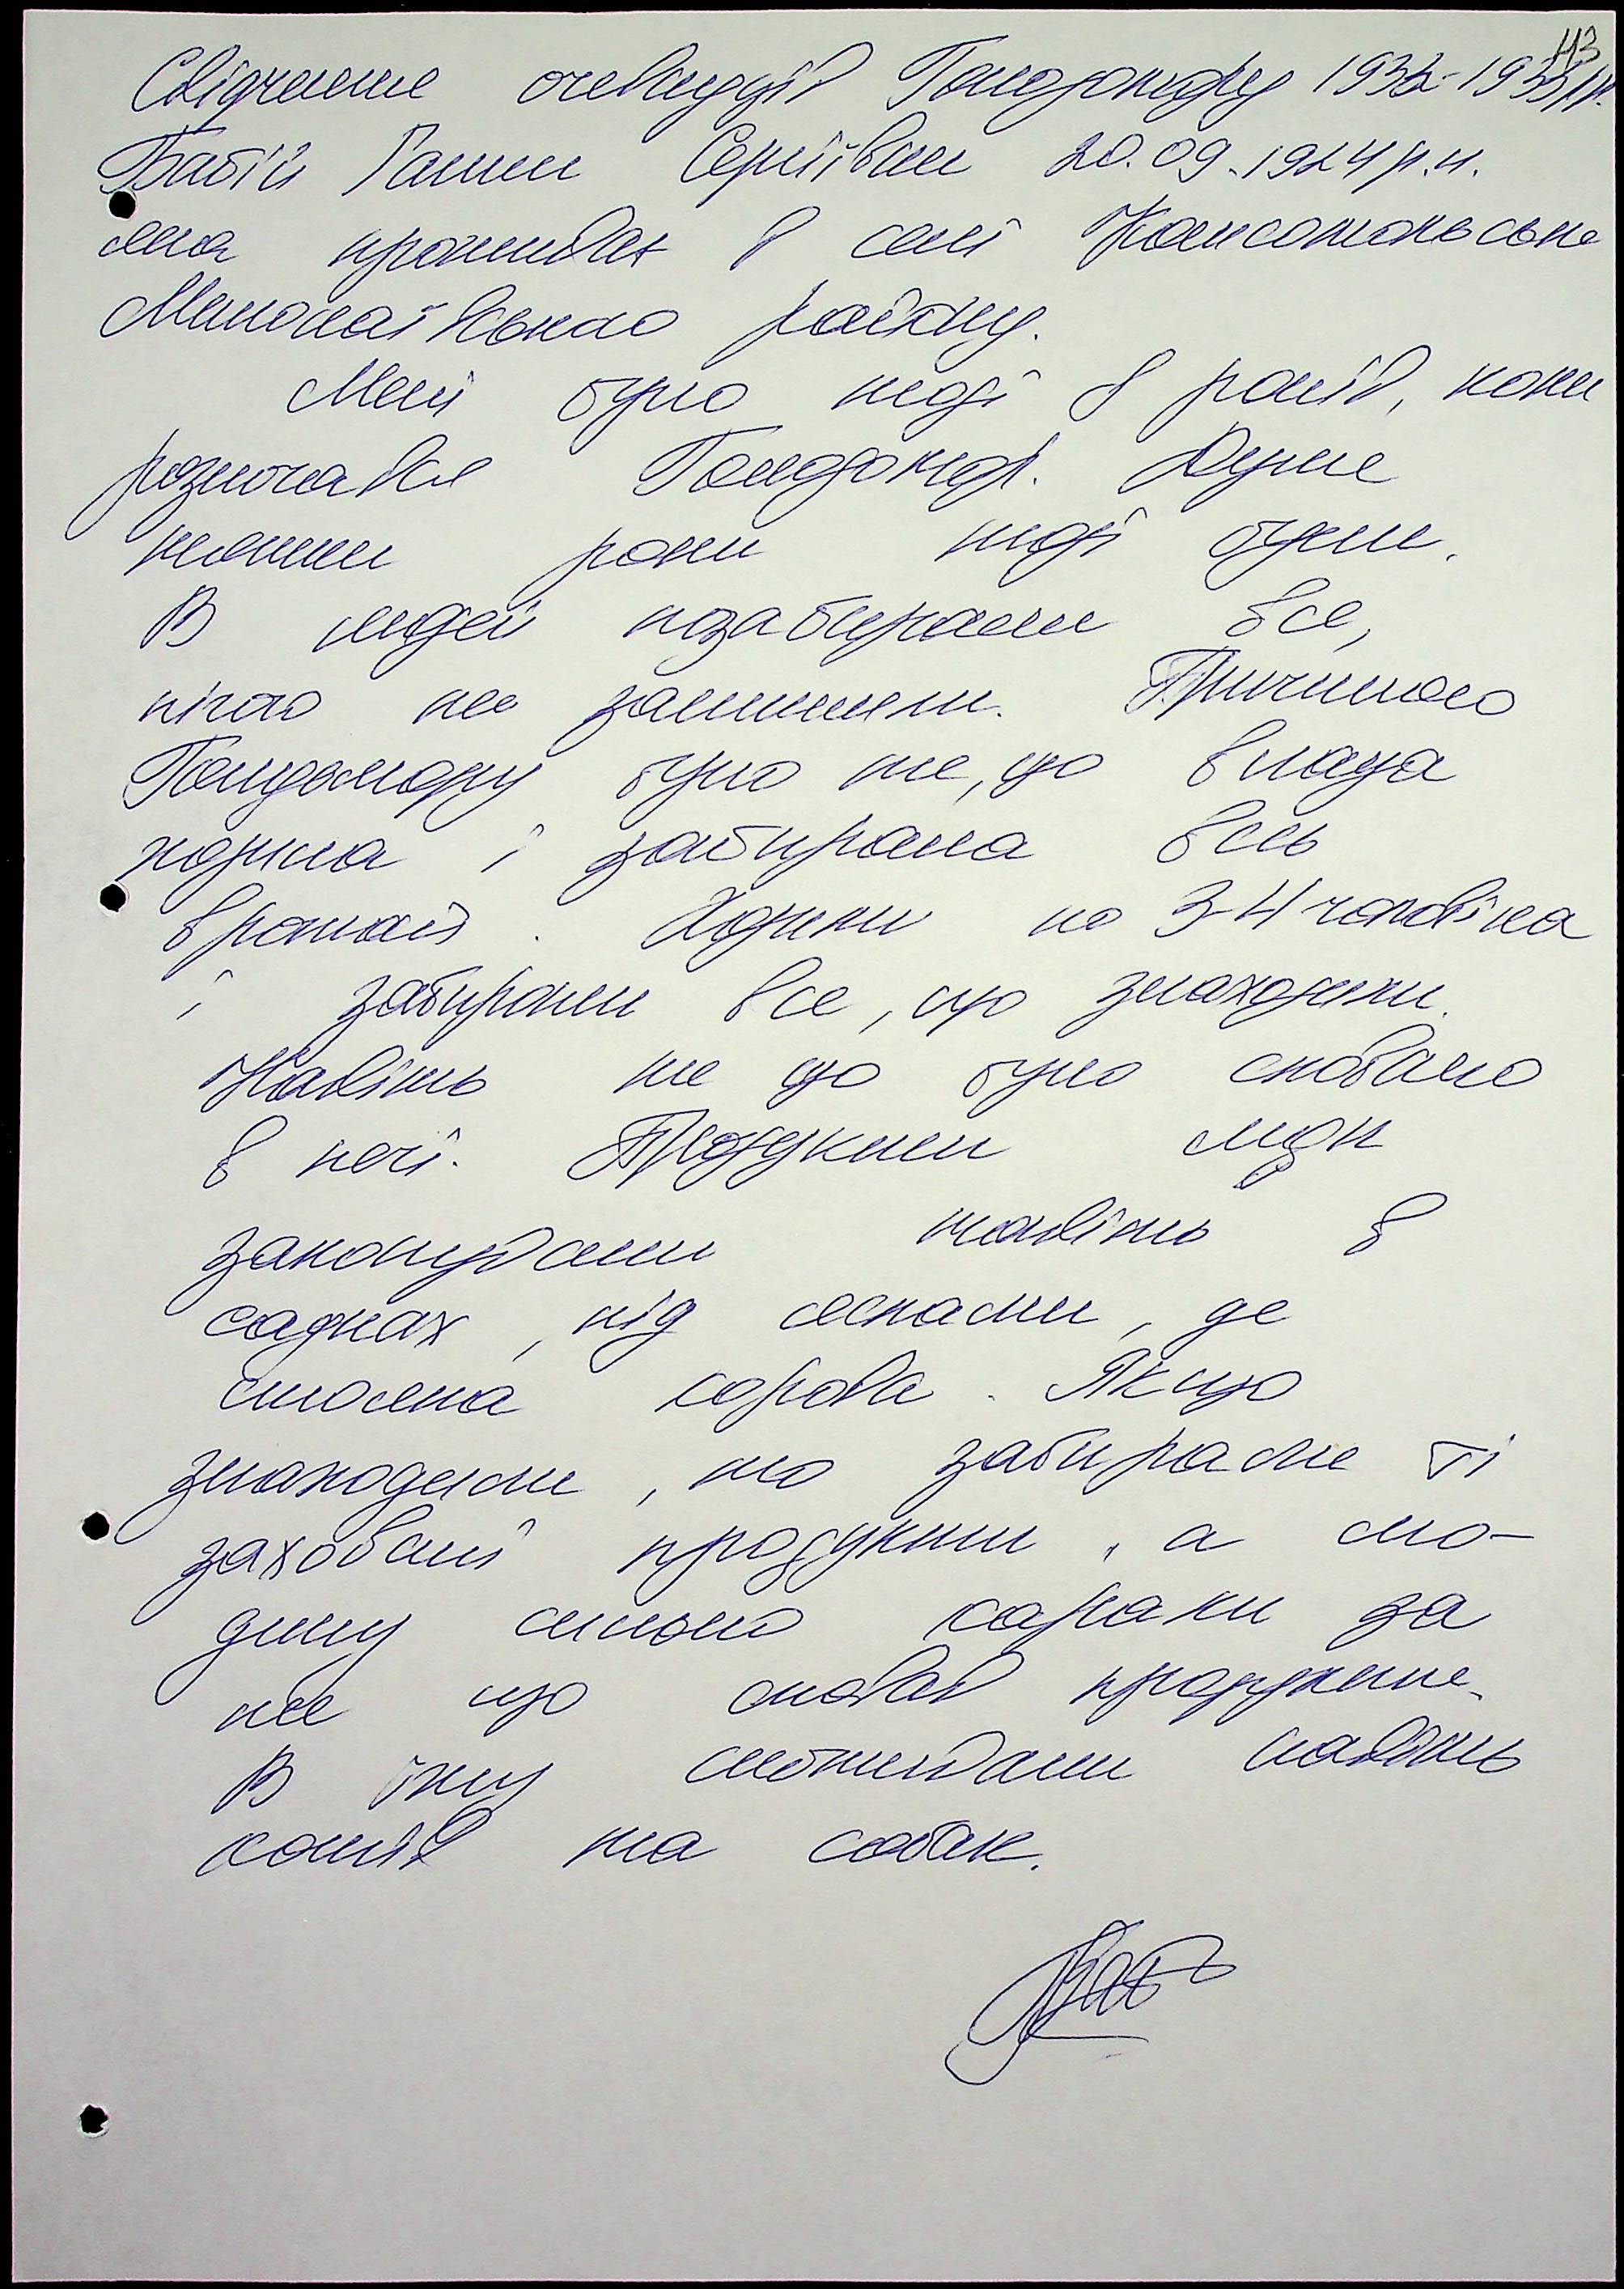 43
Свідчення очевидців Голодомору 1932-1933рр.
Бабій Ганни Сергіївни 20.09.1924р.н.
яка проживає в селі Комсомольське
Миколаївського району.
Мені було тоді 8 років, коли
розпочався Голодомор. Дуже
тяжкі роки тоді були.
В людей позабирали все,
нічого не залишили. Причиною
Голодомору було те, що влада
ходила і забирала весь
врожай. Ходили по 3-4 чоловіка
і забирали все, що знаходили.
Навіть те що було сховано
в печі. Продукти люди
закопували навіть в
садках, під яслами, де
стояла корова. Якщо
знаходили, то забирали ті
заховані продукти, а лю-
дину сильно карали за
те що сховав продукти.
В їжу споживали навіть
котів та собак.